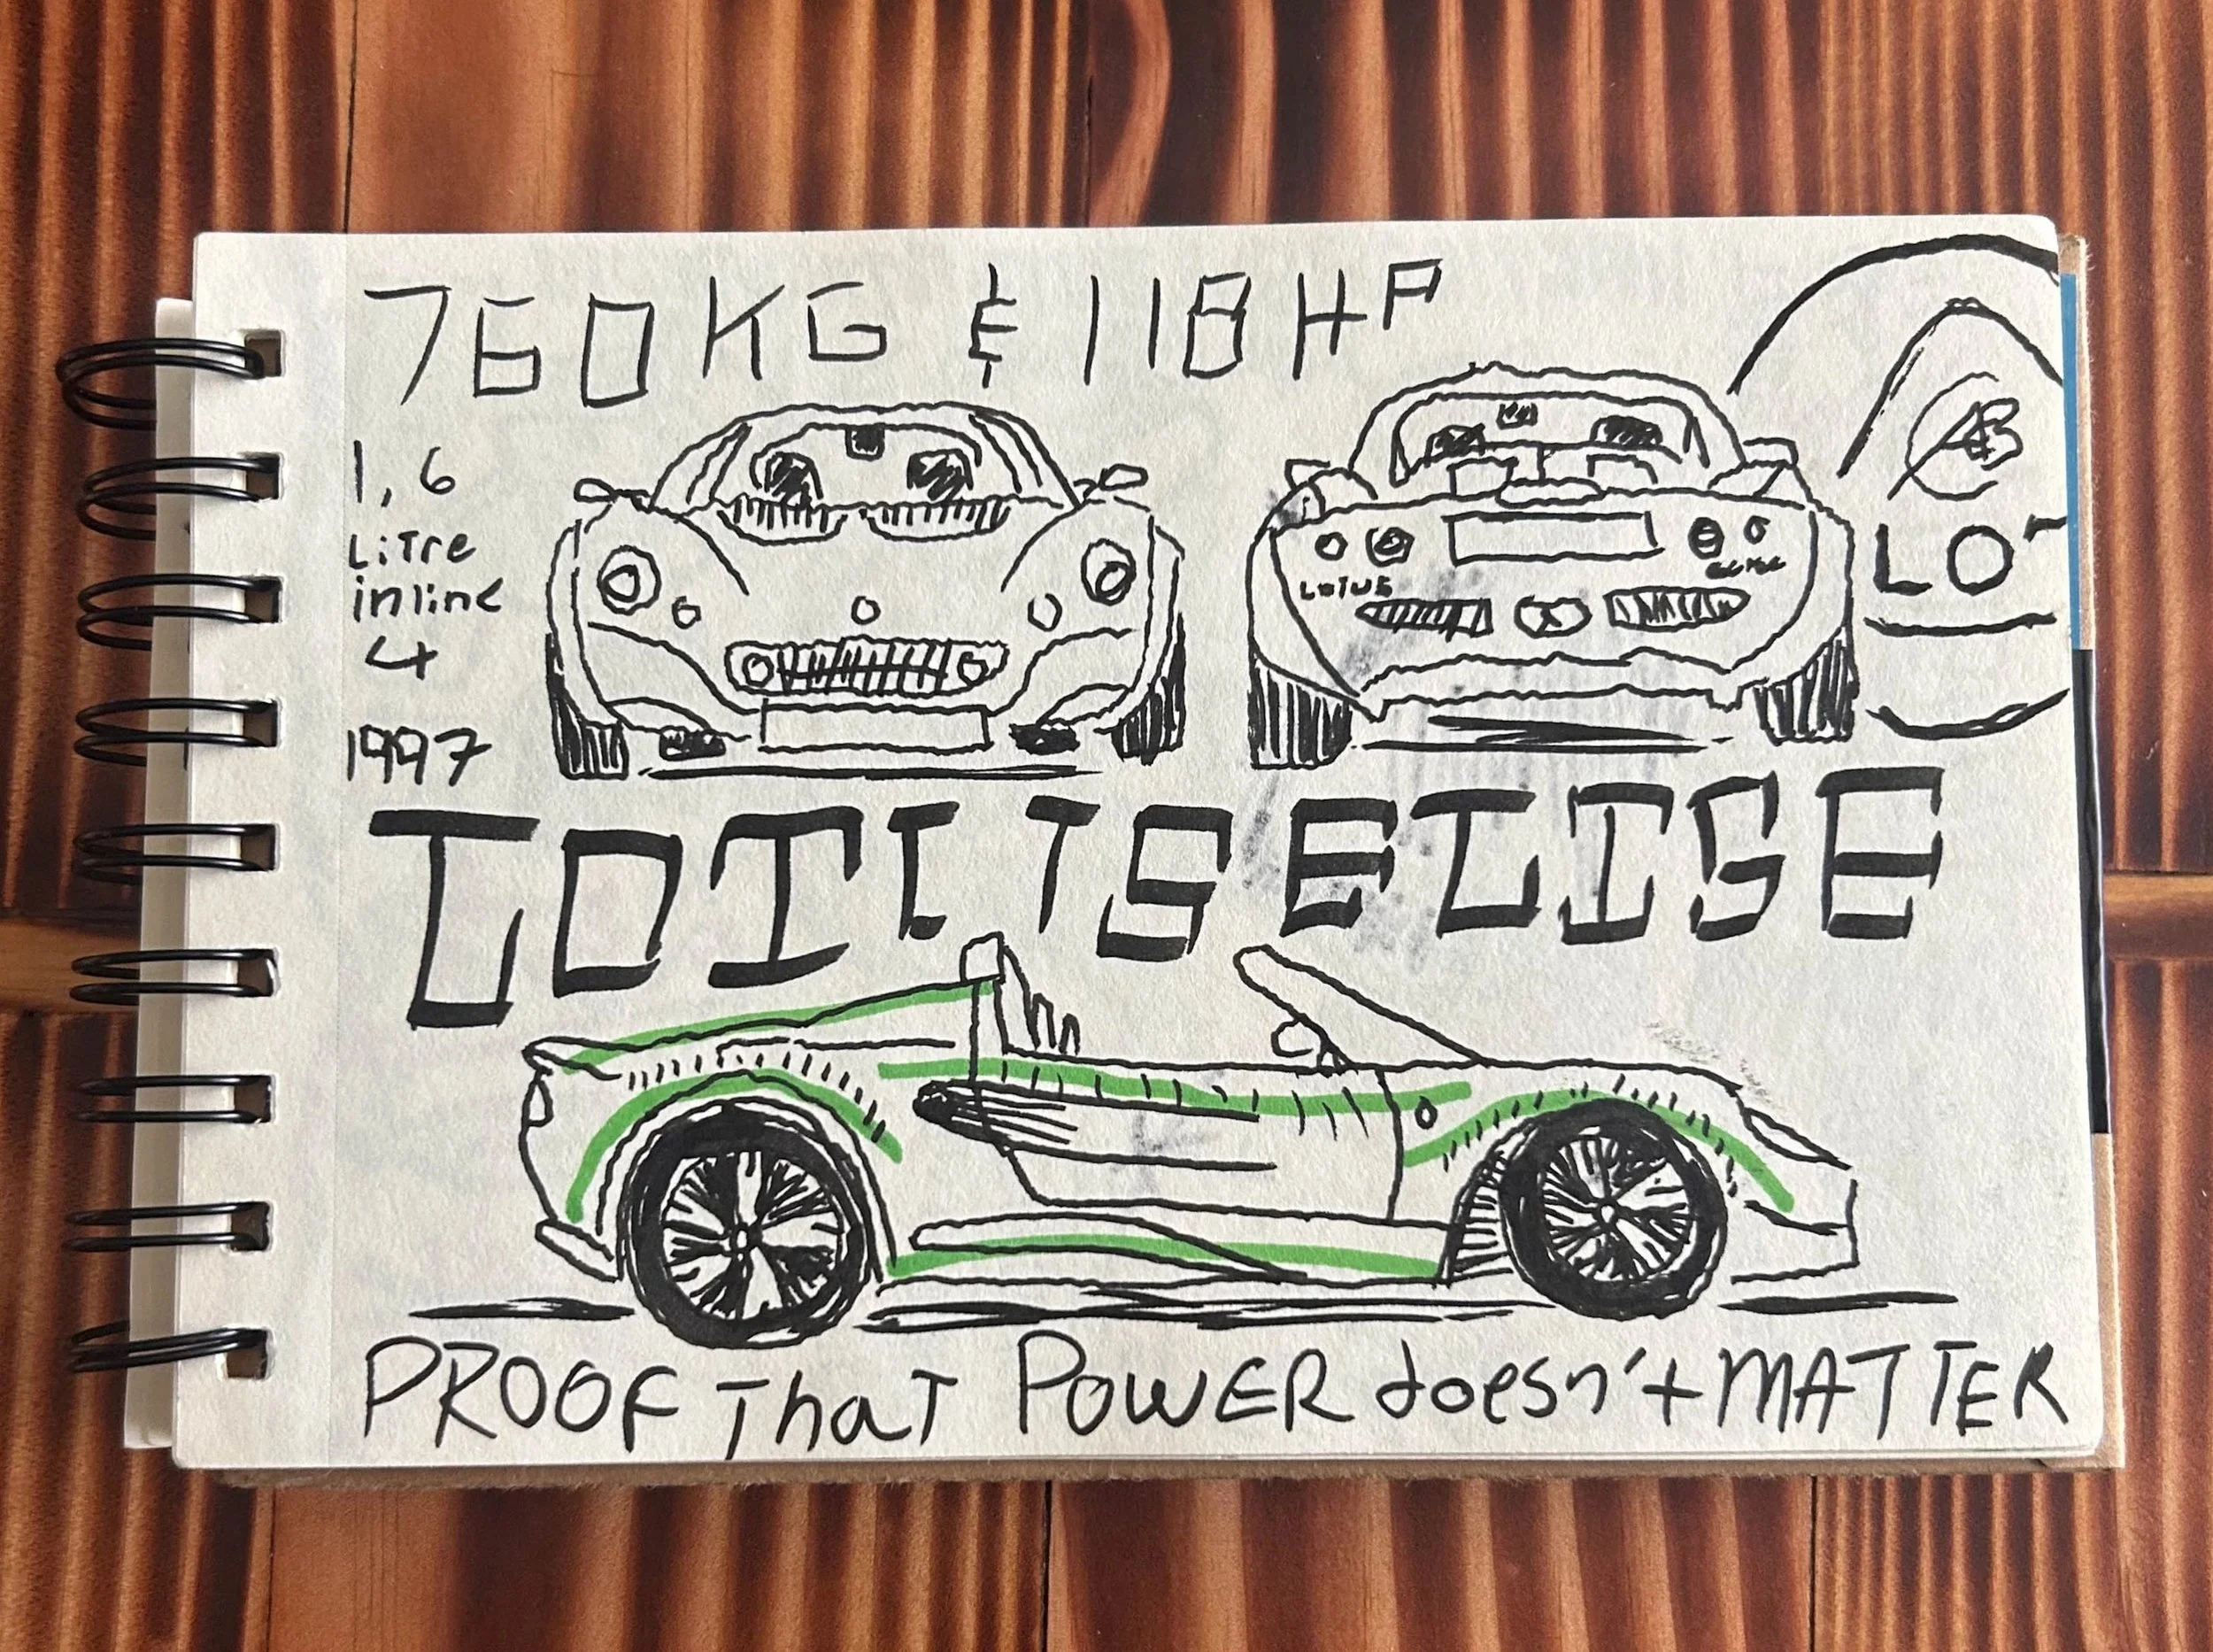 760KG & 118HP
1,6
LiTre
inline
4
1997
LOTUS
LOT
LOTUS ELISE
PROOF That POWER doesn't MATTER